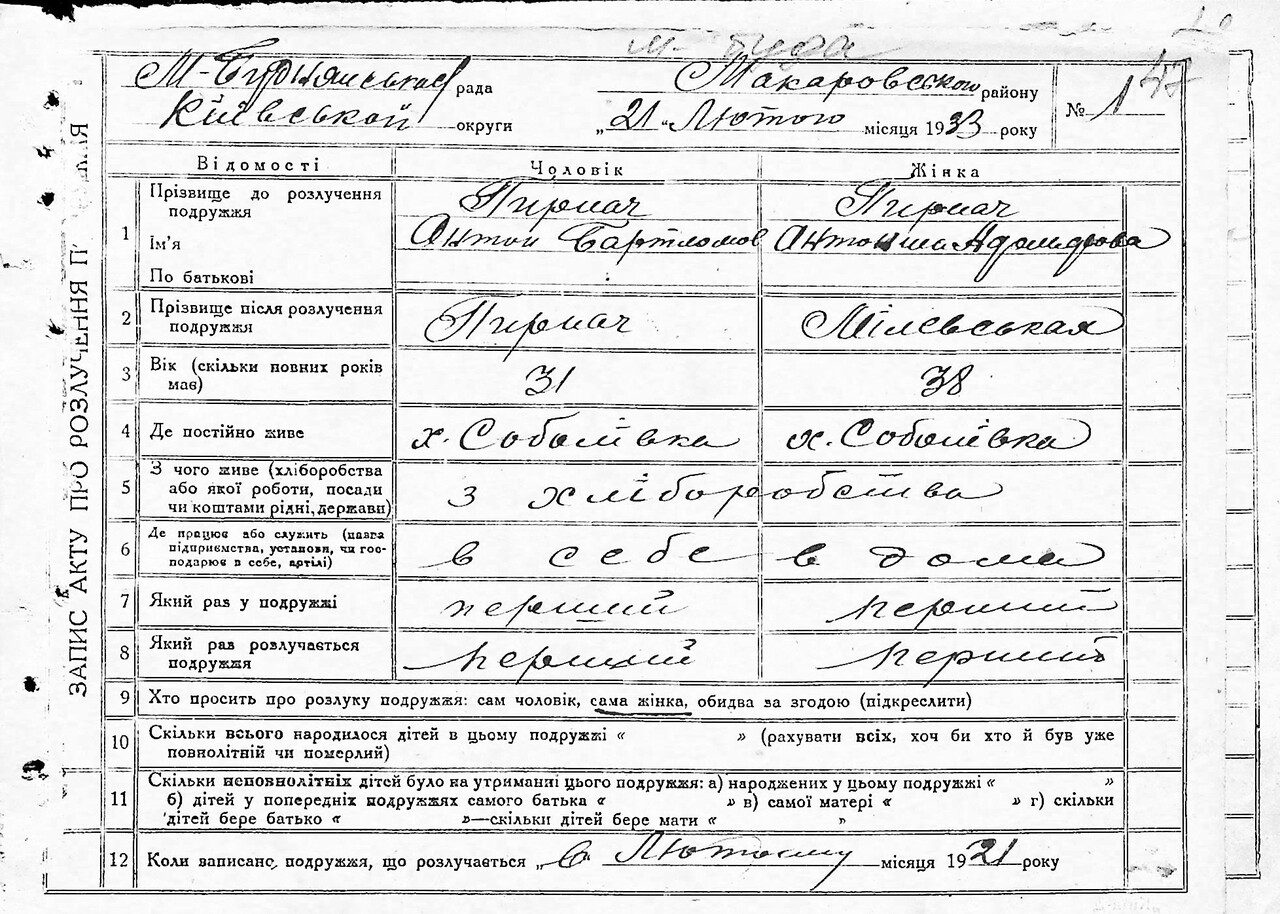 м. Буда
М-Будянська рада Макаровського району
Київській округи „21" Лютого місяця 1933 року № 1
47
ЗАПИС АКТУ ПРО РОЗЛУЧЕННЯ
Відомості Чоловік Жінка
1 Прізвище до розлучення подружжя Пирмач Пирмач
Ім'я Антон Бартломов Антонина
По батькові
2 Прізвище після розлучення подружжя Пирмач Мілевськая
3 Вік (скільки повних років має) 31 38
4 Де постійно живе х. Соболівка х. Соболівка
5 З чого живе (хліборобства або якої роботи, посади чи коштами рідні, держави) з хліборобства
6 Де працює або служить (назва підприємства, установи, чи господарює в себе, артілі) в себе в дома
7 Який раз у подружжі перший перший
8 Який раз розлучається подружжя перший перший
9 Хто просить про розлуку подружжя: сам чоловік, сама жінка, обидва за згодою (підкреслити)
10 Скільки всього народилося дітей в цьому подружжі « » (рахувати всіх, хоч би хто й був уже
повнолітній чи померлий)
11 Скільки неповнолітніх дітей було на утриманні цього подружжя: а) народжених у цьому подружжі « »
б) дітей у попередніх подружжях самого батька « » в) самої матері « » г) скільки
дітей бере батько « »—скільки дітей бере мати « »
12 Коли записано подружжя, що розлучається „в Лютому місяця 1921 року